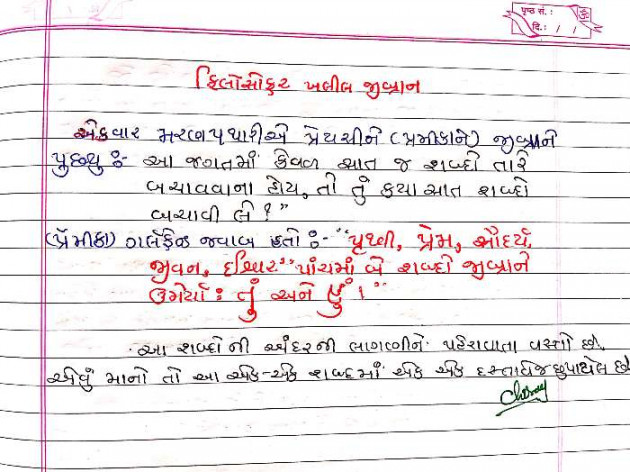 पृष्ठ सं.:
दि.: / /
ફિલોસોફર ખલીલ જીબ્રાન
એકવાર મરણપથારીએ પ્રેયસીને (પ્રેમીકાને) જીબ્રાને
પુછ્યુ ઃ- આ જગતમાં કેવળ સાત જ શબ્દો તારે
બચાવવાના હોય, તો તું કયા સાત શબ્દો
બચાવી લે ?"
(પ્રેમીકા) ગર્લફ્રેન્ડ જવાબ હતો ઃ- "પૃથ્વી, પ્રેમ, સૌંદર્ય,
જીવન, ઈશ્વર" પાંચમાં બે શબ્દો જીબ્રાને
ઉમેર્યા ઃ તું અને હું ।"
આ શબ્દો ની અંદરની લાગણીને પહેરાવાતા વસ્ત્રો છે.
એવું માનો તો આ એક-એક શબ્દમાં એક એક દસ્તાવેજ છુપાયેલ છે